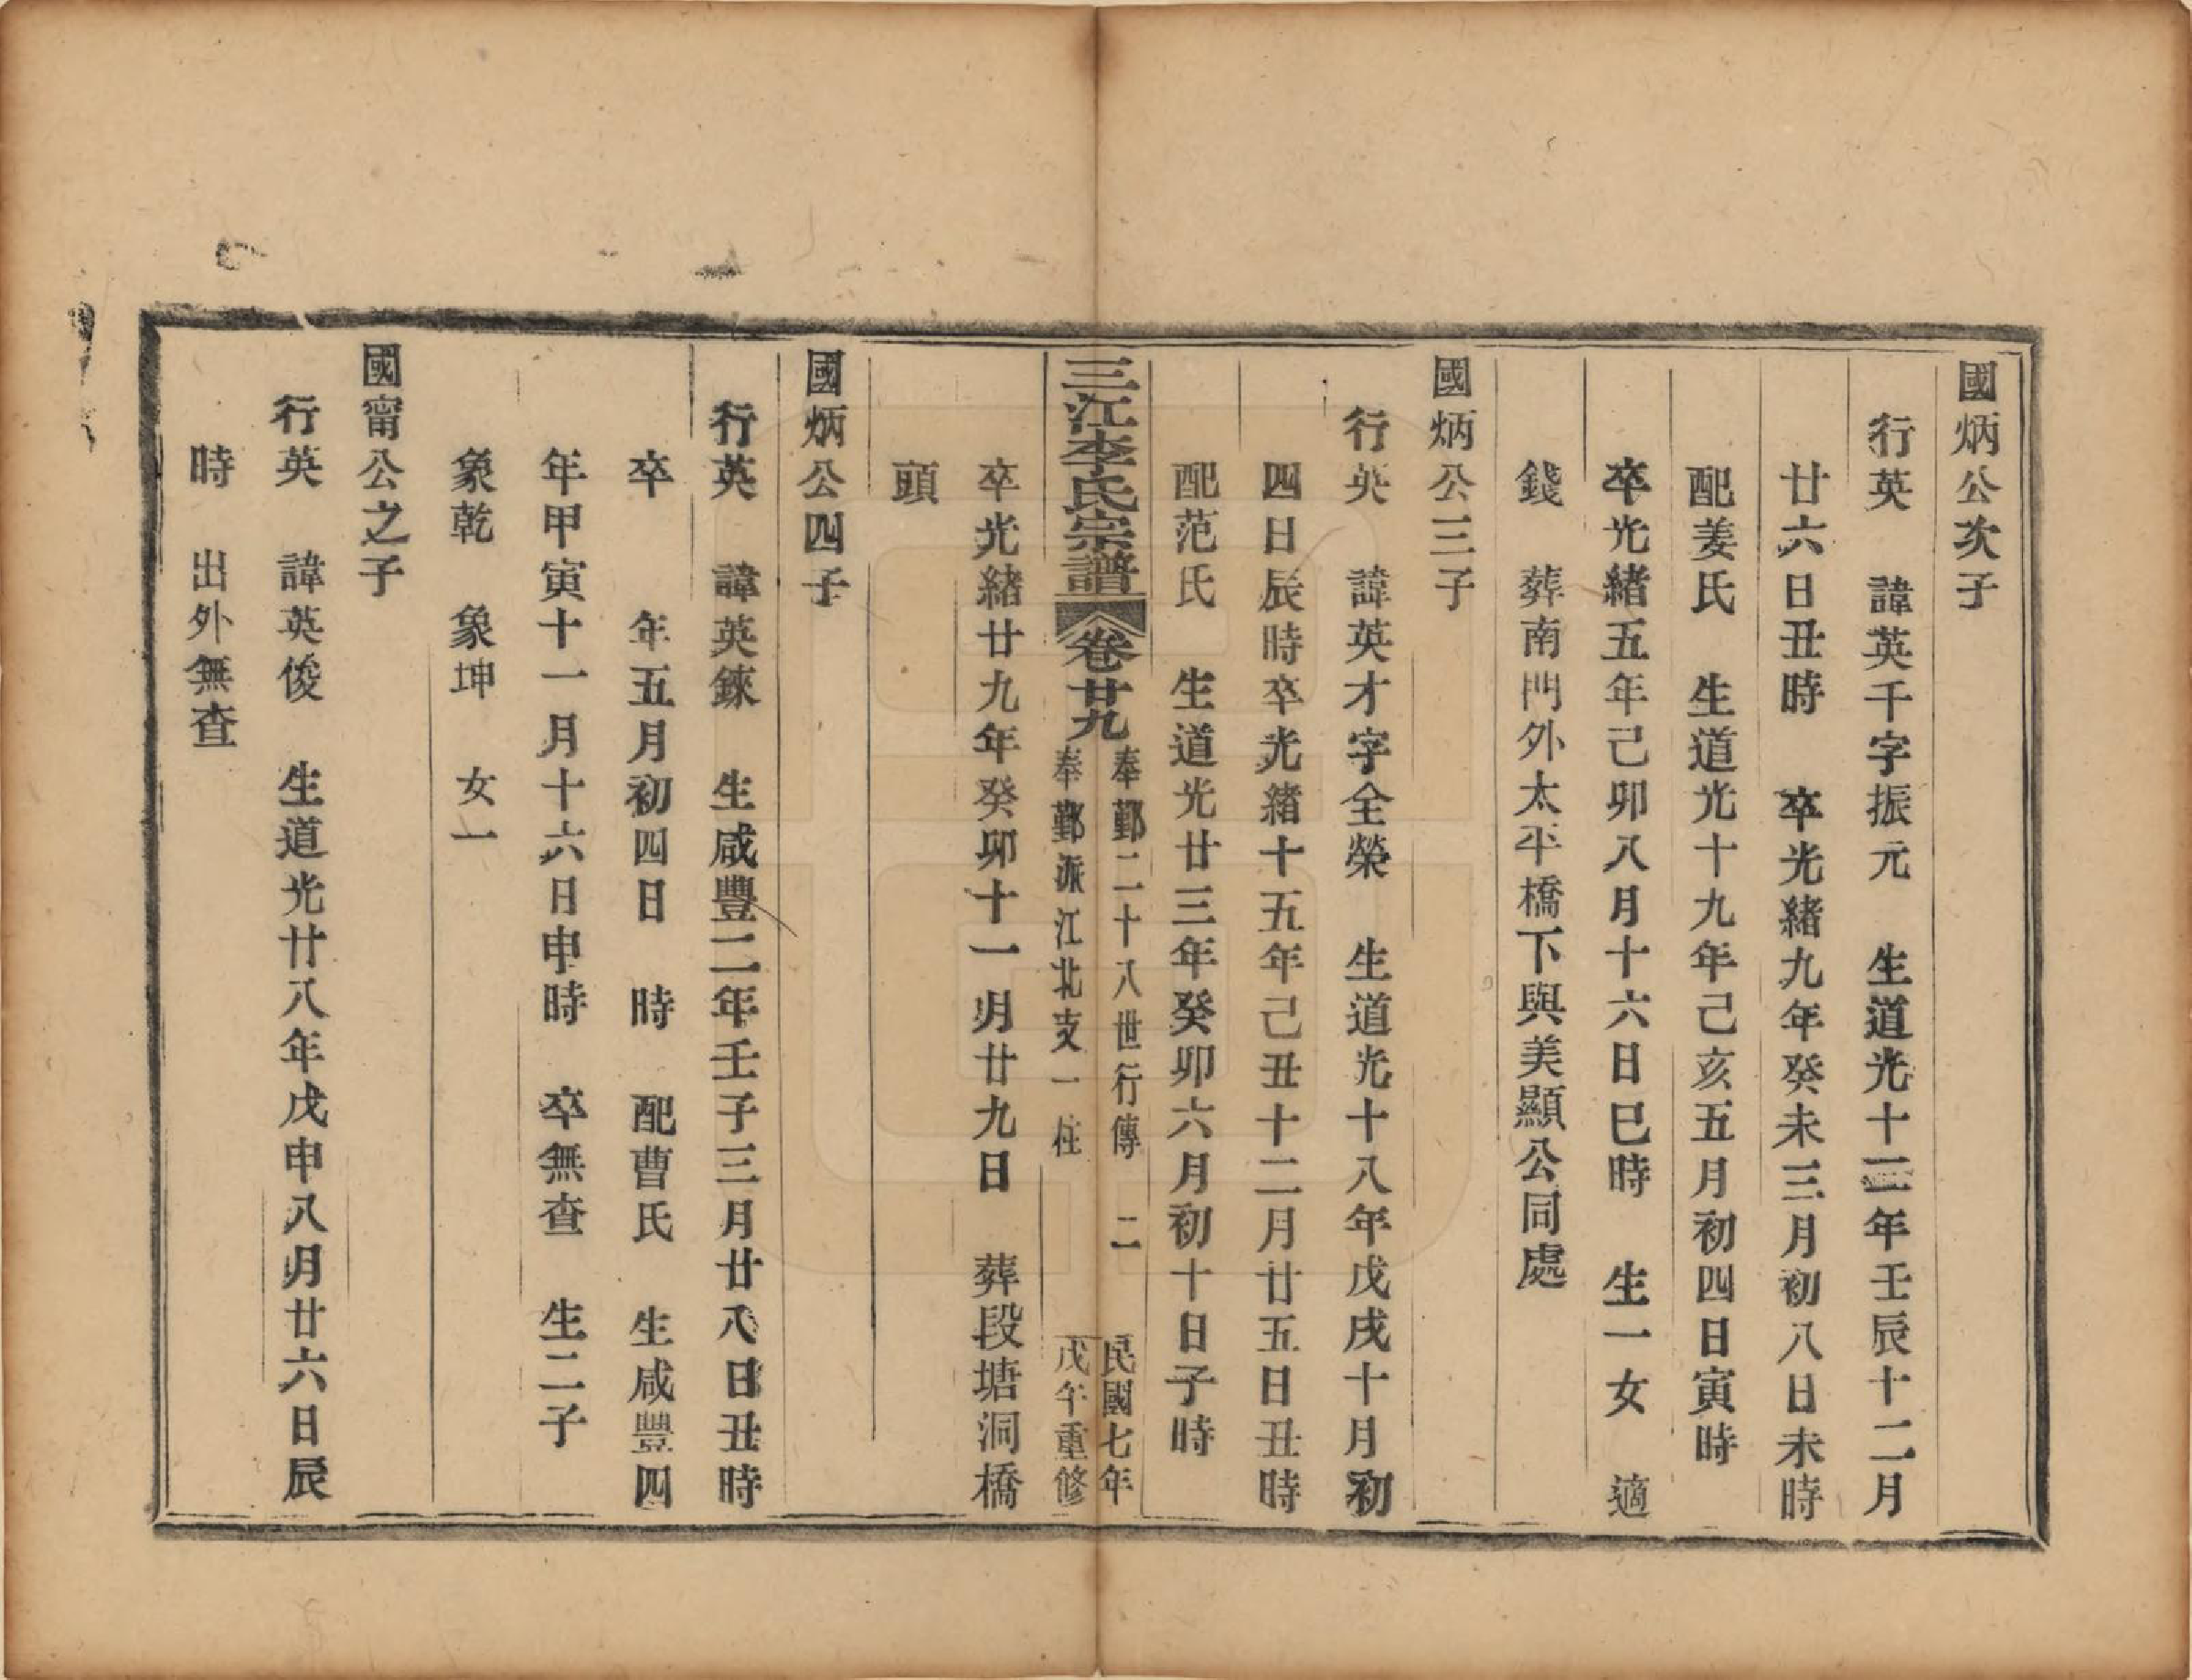 國炳公次子
行英　諱英千字振元　生道光十二年壬辰十二月
廿六日丑時　卒光緒九年癸未三月初八日未時
配姜氏　生道光十九年己亥五月初四日寅時
卒光緒五年己卯八月十六日巳時　生一女　適
錢　葬南門外太平橋下與美顯公同處
國炳公三子
行英　諱英才字全榮　生道光十八年戊戌十月初
四日辰時卒光緒十五年己丑十二月廿五日丑時
配范氏　生道光廿三年癸卯六月初十日子時
三江李氏宗譜　卷廿九
奉鄞二十八世行傳　二
奉鄞派江北支一柱
民國七年
戊午重修
卒光緒廿九年癸卯十一月廿九日　葬段塘洞橋
頭
國炳公四子
行英　諱英錸　生咸豐二年壬子三月廿八日丑時
卒　年五月初四日　時　配曹氏　生咸豐四
年甲寅十一月十六日申時　卒無查　生二子
象乾　象坤　女一
國甯公之子
行英　諱英俊　生道光廿八年戊申八月廿六日辰
時　出外無查